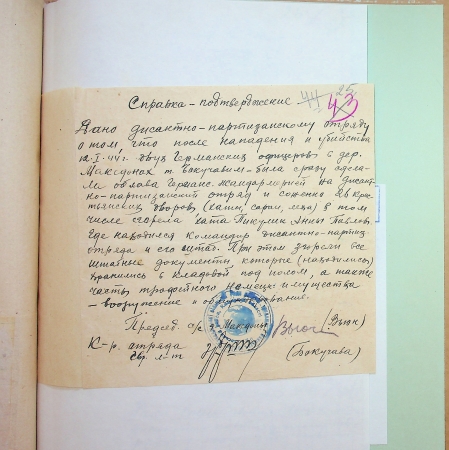 25
44 43
Справка-подтверждение
Дано десантно-партизанскому отряду
о том, что после нападения и убийства
12.I.44г. двух Германских офицеров в дер.
Макдонах т. Бокучавим - была сразу сдела-
ли облава Германс. жандармерией на десант-
но-партизанский отряд и сожжено 26 кре-
стьянских дворов (хаты, сараи,) в том
числе сгорела хата Пикулик Анны Павлов.
Где находился Командир десантно-партиз.
отряда и его штаб. При этом сгорели все
штабные документы, которые (находились)
хранились в кладовой под полом, а также
часть трофейного немецк. имущества
- вооружение и обмундирование.
Председ. с/с Вьюн (Вьюн)
К-р. отряда
гв. л-т (Бокучава)